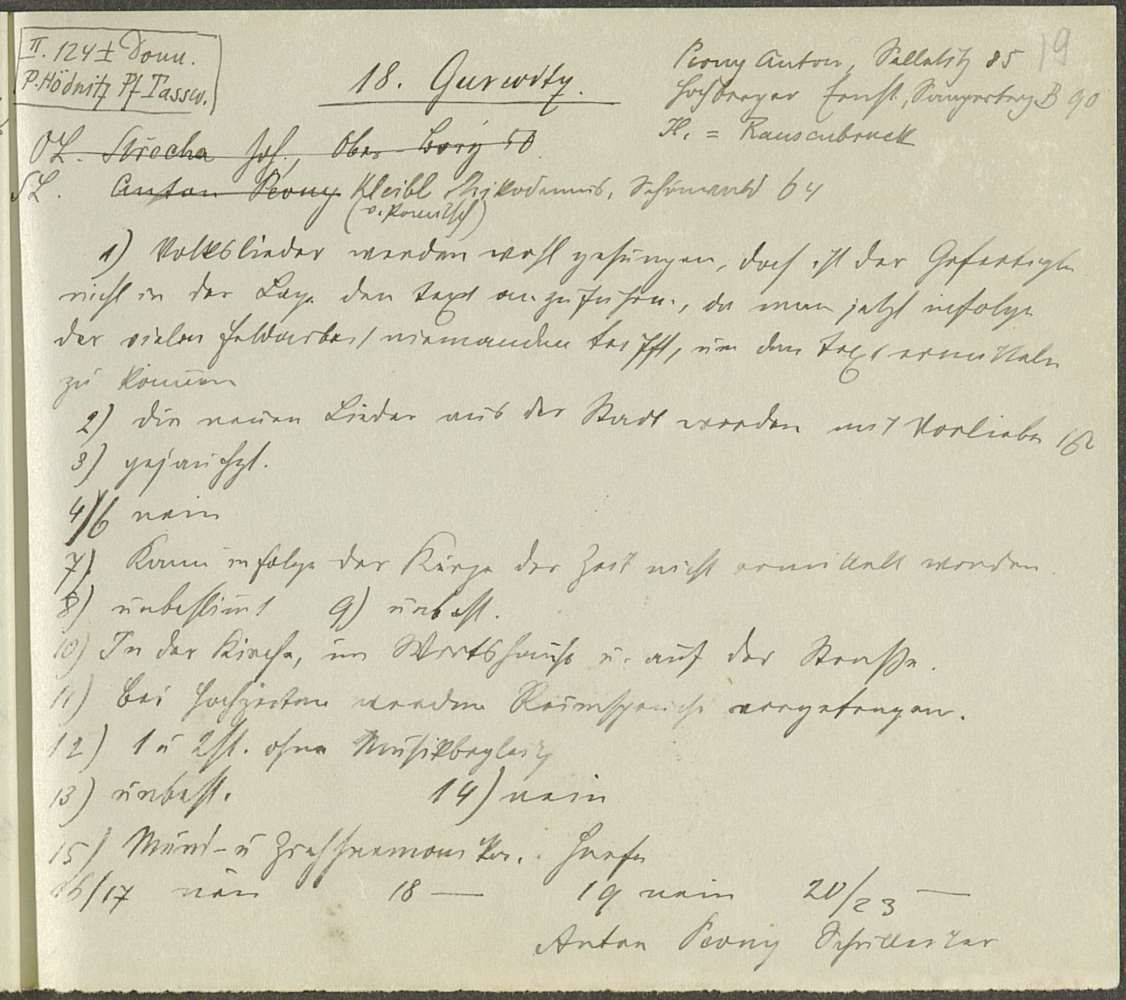 II. 124 ± Donn.
P. Hödnitz Pf Tassw.
18. Gurwitz.
Perny Anton, Sallabitz 85
Hochberger Ernst, Sangerberg B 90
H. = Rausenbruck
19
OL. Strecha Joh., Ober-Borý 50
SL. Anton Perny Kleibl Nikodemus, Schönwald 64
(v. Komitsch)
1) Volkslieder werden wohl gesungen, doch ist der Gefertigte
nicht in der Lage den Text anzuführen, da man jetzt infolge
der vielen Feldarbeit niemanden trifft, um den Text ermitteln
zu können
2) Die neuen Lieder aus der Stadt werden mit Vorliebe
3) gejauchzt.
4/6 nein
7) Kann infolge der Kürze der Zeit nicht ermittelt werden.
8) unbestimt 9) unbest.
10) In der Kirche, im Wirtshause u. auf der Straße.
11) Bei Hochzeiten werden Reimsprüche vorgetragen.
12) 1 u 2st. ohne Musikbegleitg
13) unbest. 14) nein
15) Mund- u Ziehharmonika. Harfe
16/17 nein 18 — 19 nein 20/23 —
Anton Perny Schulleiter